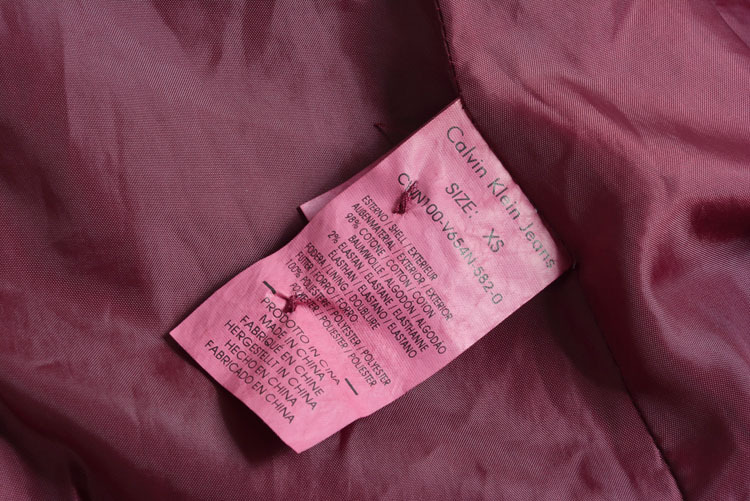 Calvin Klein Jeans
SIZE: XS
ESTERNO / SHELL / EXTERIEUR
AUBENMATERIAL / EXTERIOR / EXTERIOR
98% COTONE / COTTON / COTON
BAUMWOLLE / ALGODÓN / ALGODÃO
2% ELASTAN / ELASTANE / ELASTHANNE
ELASTHAN / ELASTANO / ELASTANO
FODERA / LINING / DOUBLURE
FUTTER / FORRO / FORRO
100% POLIESTERE / POLYESTER / POLYESTER
POLYESTER / POLIESTER
PRODOTTO IN CINA
MADE IN CHINA
FABRIQUE EN CHINE
HERGESTELLT IN CHINA
HECHO EN CHINA
FABRICADO EN CHINA